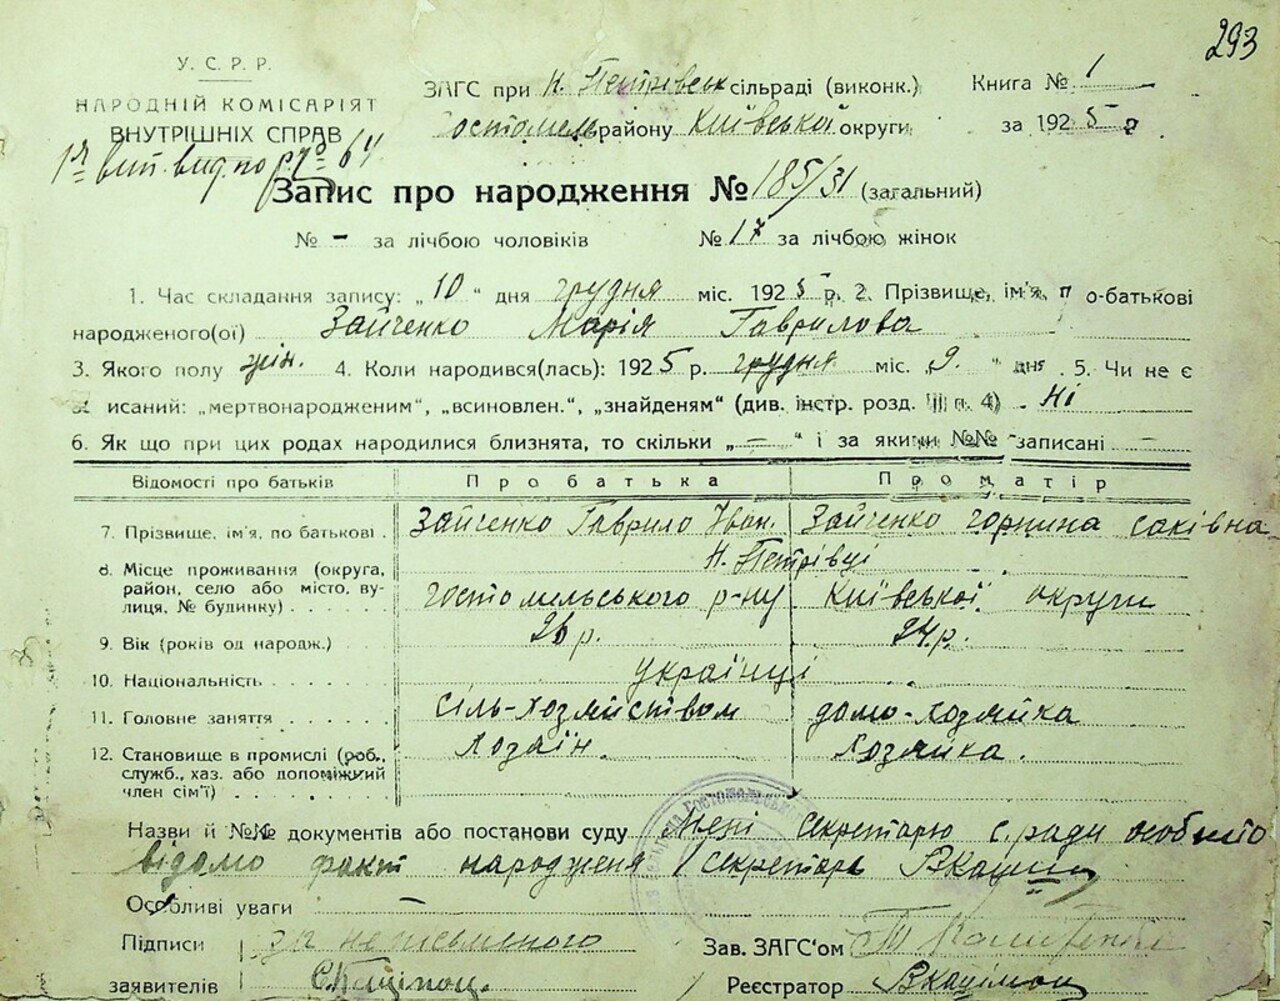 293
У. С. Р. Р.
НАРОДНІЙ КОМІСАРІЯТ
ВНУТРІШНІХ СПРАВ
ЗАГС при Н. Петрівськ сільраді (виконк.)
Гостомель району Київської округи
Книга № 1
за 1925 р
Запис про народження № 185/31 (загальний)
№ – за лічбою чоловіків № 17 за лічбою жінок
1. Час складання запису: „10“ дня грудня міс. 1925 р. 2. Прізвище, ім'я, по-батькові
народженого(ої) Зайченко Марія Гаврилова
3. Якого полу жін. 4. Коли народився(лась): 1925 р. грудня міс. „9.“ дня. 5. Чи не є
исаний: „мертвонародженим“, „всиновлен.“, „знайденям“ (див. інстр. розд. III п. 4) Ні
6. Як що при цих родах народилися близнята, то скільки „–“ і за якими №№ записані –
Відомості про батьків Про батька Про матір
7. Прізвище, ім'я, по батькові . Зайченко Гаврило Іван. Зайченко Горпина Саківна
8. Місце проживання (округа, район, село або місто, вулиця, № будинку) Н. Петрівці
Гостомельського р-ну Київської округи
9. Вік (років од народж.) 26 р. 24 р.
10. Національність українці
11. Головне заняття сіль-хозяйством домо-хозяйка
12. Становище в промислі (роб., служб., хаз. або допоміжний член сім'ї) Хозаїн. Хозяйка.
Назви й №№ документів або постанови суду Мені секретарю с. ради особисто
відомо факт народженя / Секретарь
Особливі уваги –
Підписи за неписьменого Зав. ЗАГС'ом
заявителів Реєстратор